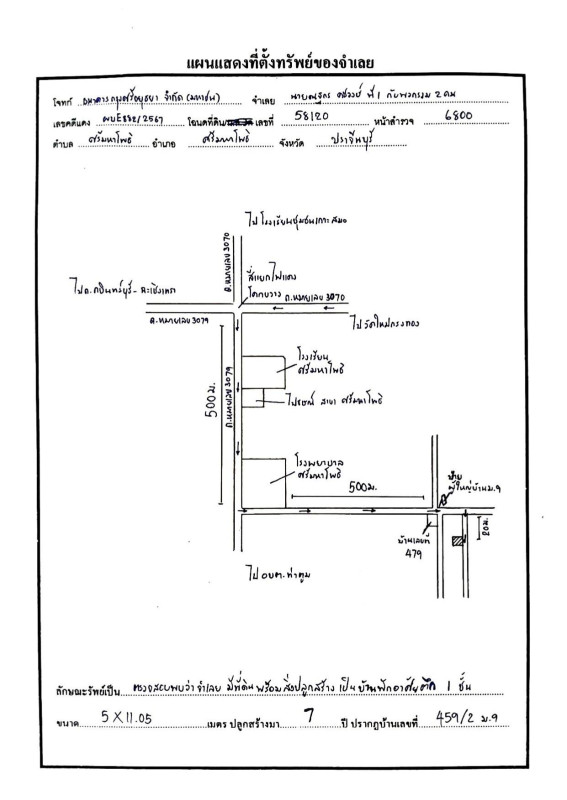 แผนแสดงที่ตั้งทรัพย์ของจำเลย
โจทก์ ธนาคารกรุงศรีอยุธยา จำกัด (มหาชน) จำเลย ที่ 1 กับพวกรวม 2 คน
เลขคดีแดง ผบE882/2567 โฉนดที่ดิน เลขที่ 58120 หน้าสำรวจ 6800
ตำบล ศรีมหาโพธิ อำเภอ ศรีมหาโพธิ จังหวัด ปราจีนบุรี
ไปโรงเรียนชุมชนเกาะสมอ
ถ.หมายเลข 3070
สี่แยกไฟแดง
ไปถ.กบินทร์บุรี-ฉะเชิงเทรา
โคกขวาง ถ.หมายเลข 3070
ถ.หมายเลข 3079
ไปวัดใหม่กรงทอง
โรงเรียน
ศรีมหาโพธิ
500 ม.
ถ.หมายเลข 3079
ไปรษณีย์ สาขา ศรีมหาโพธิ
โรงพยาบาล
ศรีมหาโพธิ
500 ม.
ป้าย
ผู้ใหญ่บ้าน ม.9
20 ม.
บ้านเลขที่
479
ไป อบต.ท่าตูม
ลักษณะทรัพย์เป็น ตรวจสอบพบว่า จำเลย มีที่ดิน พร้อมสิ่งปลูกสร้าง เป็น บ้านพักอาศัยตึก 1 ชั้น
ขนาด 5 X 11.05 เมตร ปลูกสร้างมา 7 ปี ปรากฏบ้านเลขที่ 459/2 ม.9